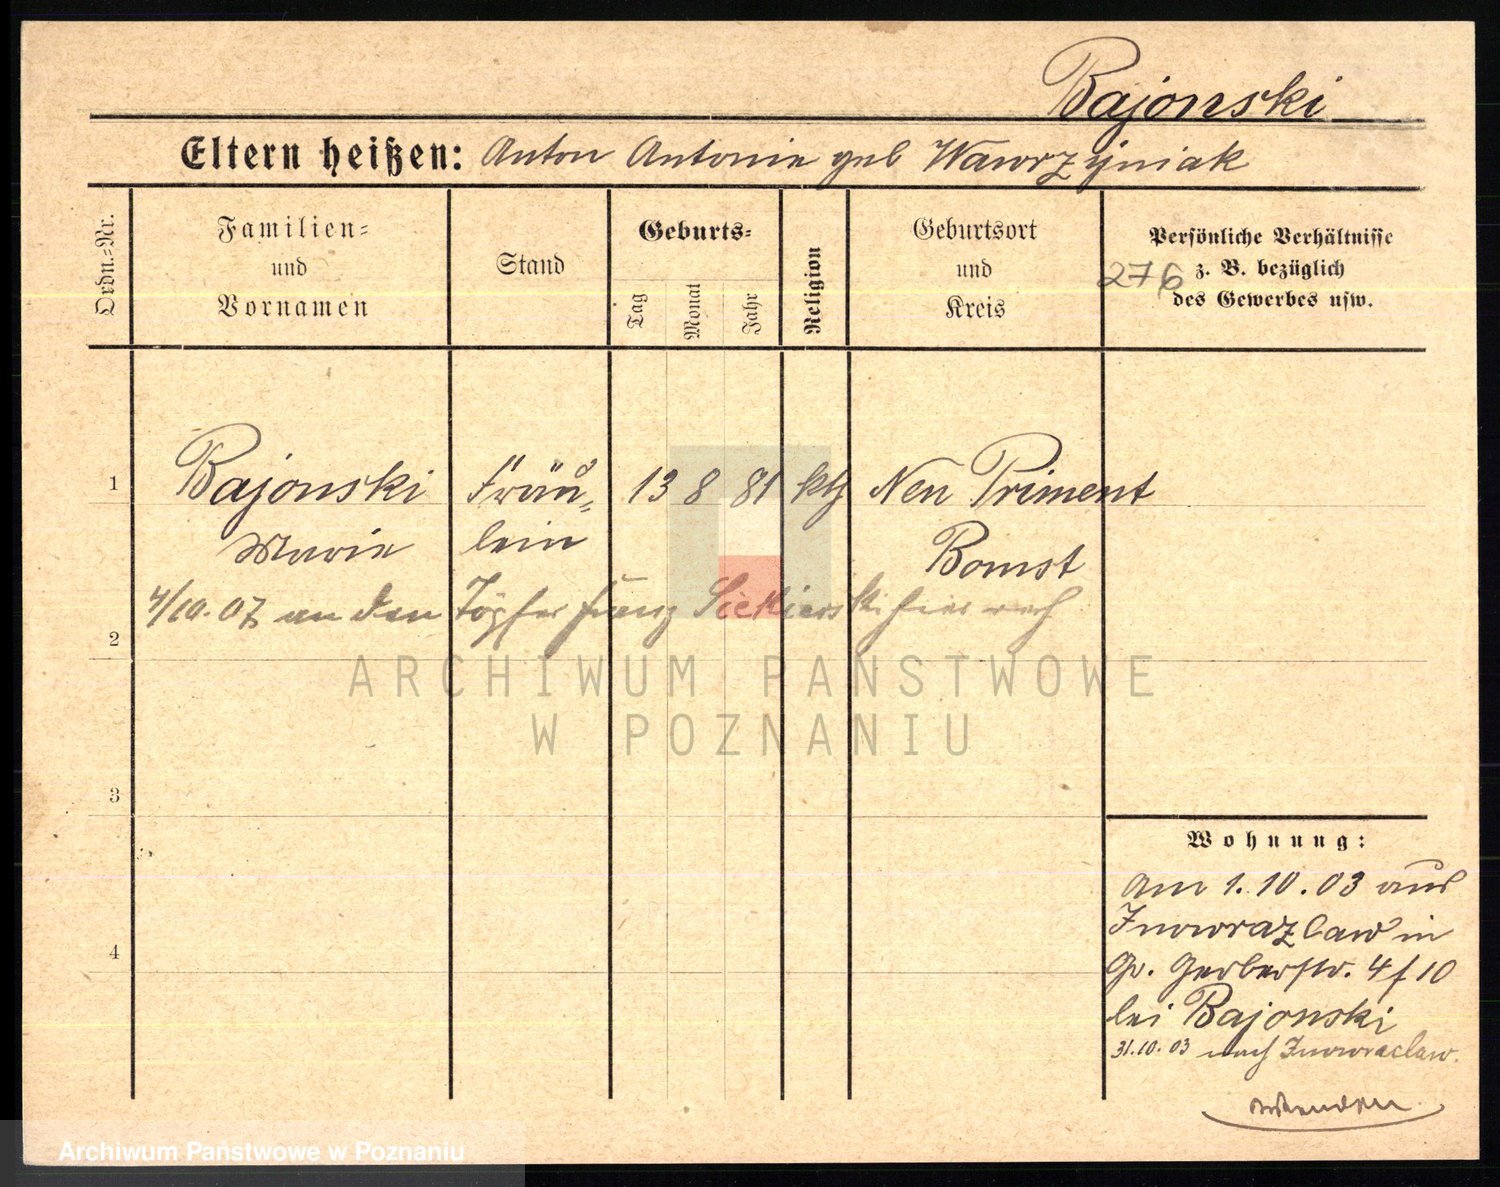 Bajonski
Eltern heißen: Anton Antonie geb Wawrzyniak
Ordn.=Nr.
Familien=
und
Vornamen
Stand
Geburts=
Tag
Monat
Jahr
Religion
Geburtsort
und
Kreis
Persönliche Verhältnisse
z. B. bezüglich
des Gewerbes usw.
276
1 Bajonski Fräu= 13 8 81 kth Neu Priment
Marie lein Bomst
4/10.07 an den Töpfer Franz Siekierski hier verh
2
3
4
ARCHIWUM PANSTWOWE
W POZNANIU
Wohnung:
Am 1.10.03 aus
Inowrazlaw in
Gr. Gerberstr. 4 f 10
bei Bajonski
31.10.03 nach Inowraclaw.
Archiwum Państwowe w Poznaniu